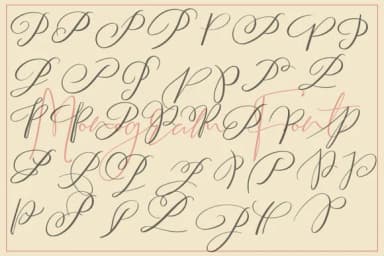 P P P P P P P P
P P P P P P P
P P P P P P P P
Monogram Font
P P P P P P P P
P P P P P P P